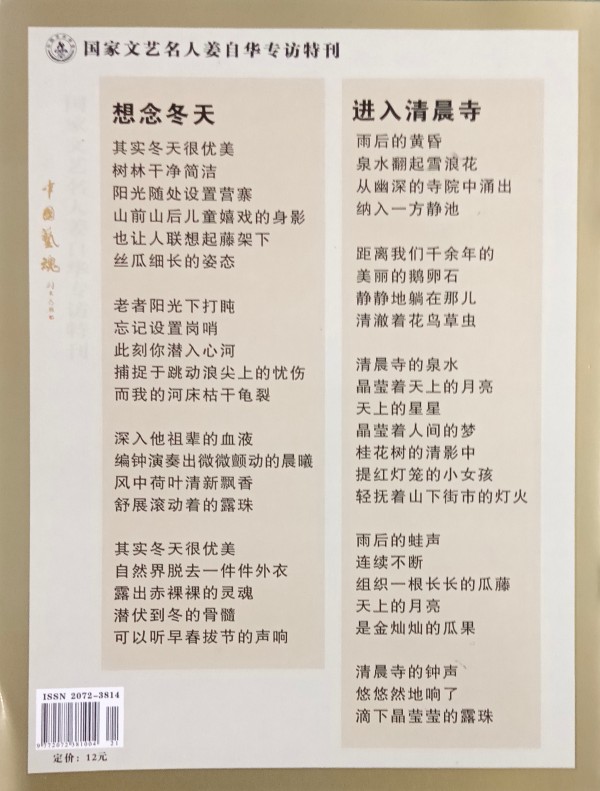 国家文艺名人姜自华专访特刊
中国艺魂
想念冬天
其实冬天很优美
树林干净简洁
阳光随处设置营寨
山前山后儿童嬉戏的身影
也让人联想起藤架下
丝瓜细长的姿态
老者阳光下打盹
忘记设置岗哨
此刻你潜入心河
捕捉于跳动浪尖上的忧伤
而我的河床枯干龟裂
深入他祖辈的血液
编钟演奏出微微颤动的晨曦
风中荷叶清新飘香
舒展滚动着的露珠
其实冬天很优美
自然界脱去一件件外衣
露出赤裸裸的灵魂
潜伏到冬的骨髓
可以听早春拔节的声响
进入清晨寺
雨后的黄昏
泉水翻起雪浪花
从幽深的寺院中涌出
纳入一方静池
距离我们千余年的
美丽的鹅卵石
静静地躺在那儿
清澈着花鸟草虫
清晨寺的泉水
晶莹着天上的月亮
天上的星星
晶莹着人间的梦
桂花树的清影中
提红灯笼的小女孩
轻抚着山下街市的灯火
雨后的蛙声
连续不断
组织一根长长的瓜藤
天上的月亮
是金灿灿的瓜果
清晨寺的钟声
悠悠然地响了
滴下晶莹莹的露珠
ISSN 2072-3814
9 772072 381004
21
定价：12元